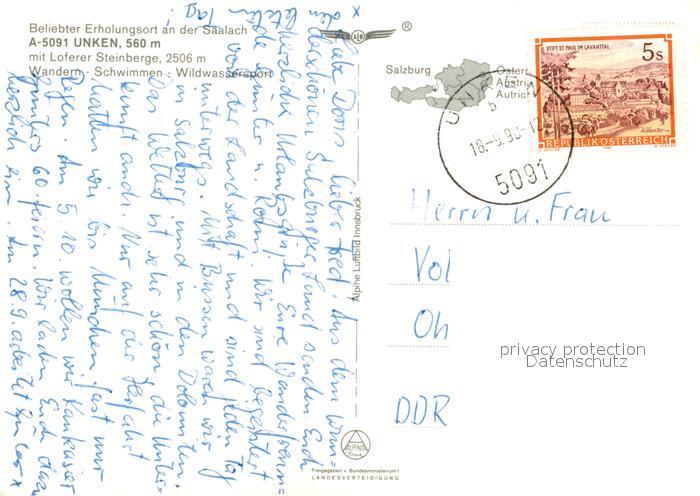 Beliebter Erholungsort an der Saalach
A-5091 UNKEN, 560 m
mit Loferer Steinberge, 2506 m
Wandern - Schwimmen - Wildwassersport
®
Salzburg
Österr
Austri
Autric
STIFT ST. PAUL IM LAVANTTAL
5s
REPUBLIK ÖSTERREICH
UNKEN
b
18.-9.90-12
5091
Liebe Doris, lieber Fred! Aus dem wun-
derschönen Salzburger Land senden Euch
herzliche Urlaubsgrüße Eure Wanderfreun-
de u. Wir sind begeistert
von der Landschaft und sind jeden Tag
unterwegs. Mit Bussen waren wir
in Salzburg und in den Dolomiten.
Das Wetter ist sehr schön die Unter-
kunft auch. Nur auf der Herfahrt
hatten wir bis München fast nur
Regen. Am 5.10. wollen wir
60. feiern. Wir laden Euch dazu
herzlich ein. Am 28.9. arbeitet
x
Tag!
Alpine Luftbild Innsbruck
Herrn u. Frau
Vol
Oh
DDR
privacy protection
Datenschutz
ALPINE
Freigegeben v. Bundesministerium f.
LANDESVERTEIDIGUNG